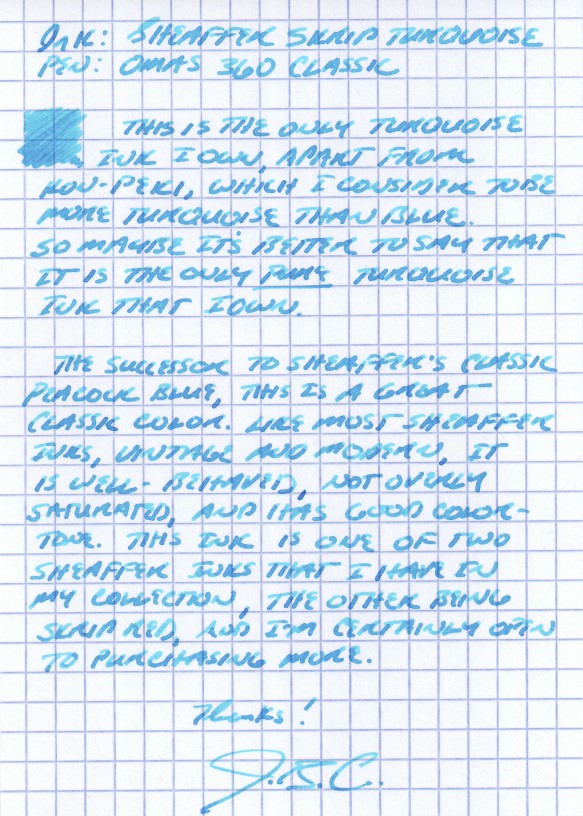 INK: SHEAFFER SKRIP TURQUOISE
PEN: OMAS 360 CLASSIC
THIS IS THE ONLY TURQUOISE
INK I OWN, APART FROM
KON-PEKI, WHICH I CONSIDER TO BE
MORE TURQUOISE THAN BLUE.
SO MAYBE IT'S BETTER TO SAY THAT
IT IS THE ONLY PURE TURQUOISE
INK THAT I OWN.
THE SUCCESSOR TO SHEAFFER'S CLASSIC
PEACOCK BLUE, THIS IS A GREAT
CLASSIC COLOR. LIKE MOST SHEAFFER
INKS, VINTAGE AND MODERN, IT
IS WELL-BEHAVED, NOT OVERLY
SATURATED, AND HAS GOOD COLOR-
TONE. THIS INK IS ONE OF TWO
SHEAFFER INKS THAT I HAVE IN
MY COLLECTION, THE OTHER BEING
SKRIP RED, AND I'M CERTAINLY OPEN
TO PURCHASING MORE.
Thanks!
J.B.C.